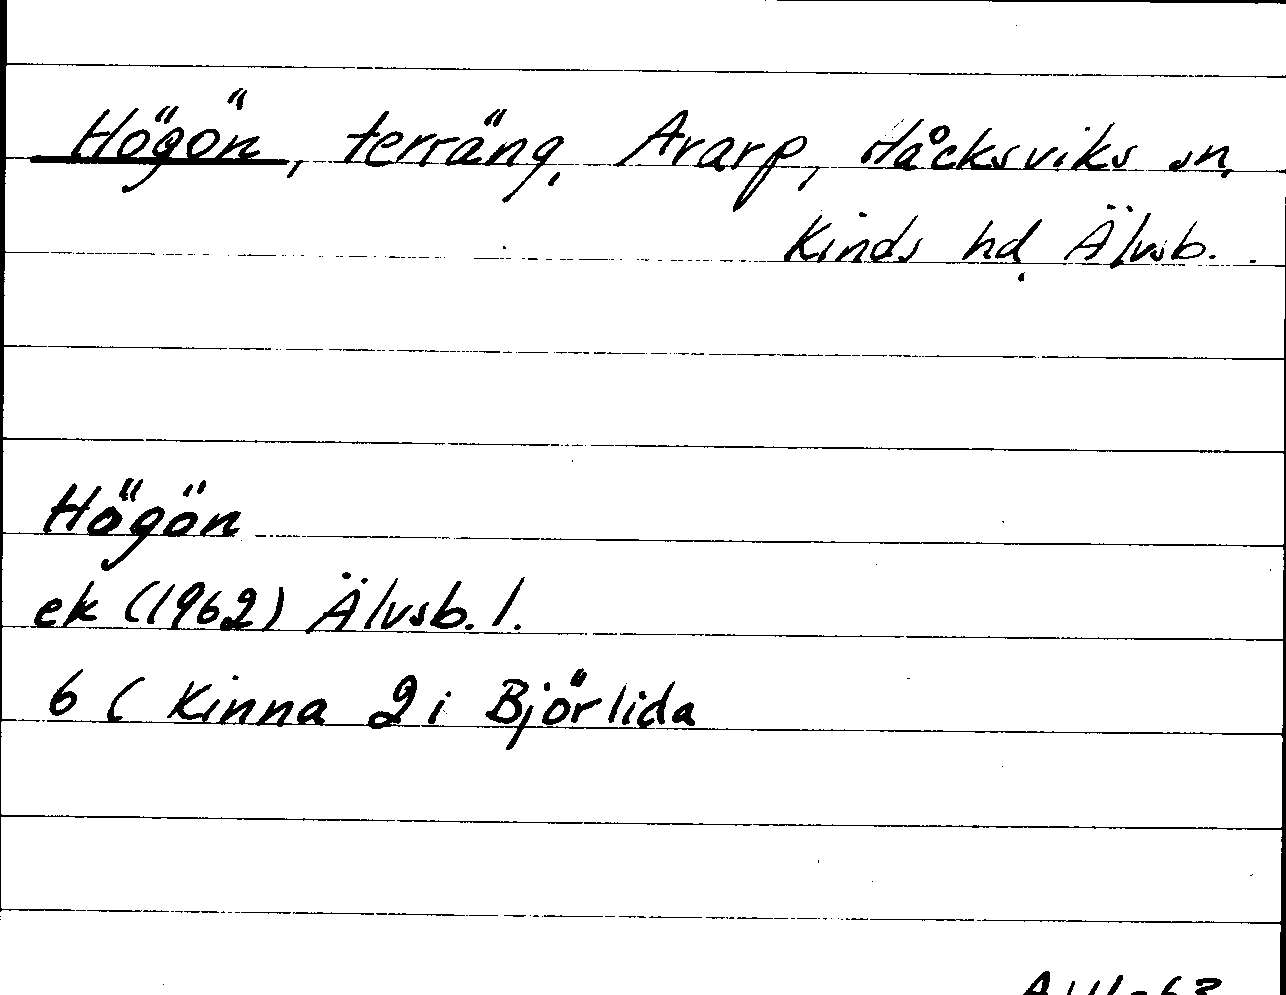 Högön, terräng, Ararp, Håcksviks sn,
Kinds hd, Älvsb. .
Högön
ek (1962) Älvsb. l.
6 C Kinna 2 i Björlida